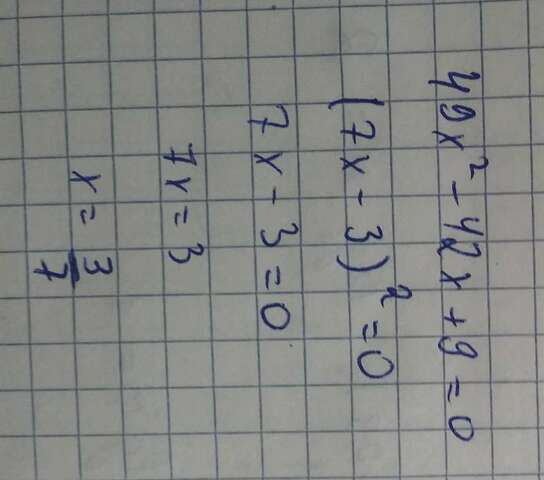 49x² - 42x + 9 = 0
(7x - 3)² = 0
7x - 3 = 0
7x = 3
x = 3/7